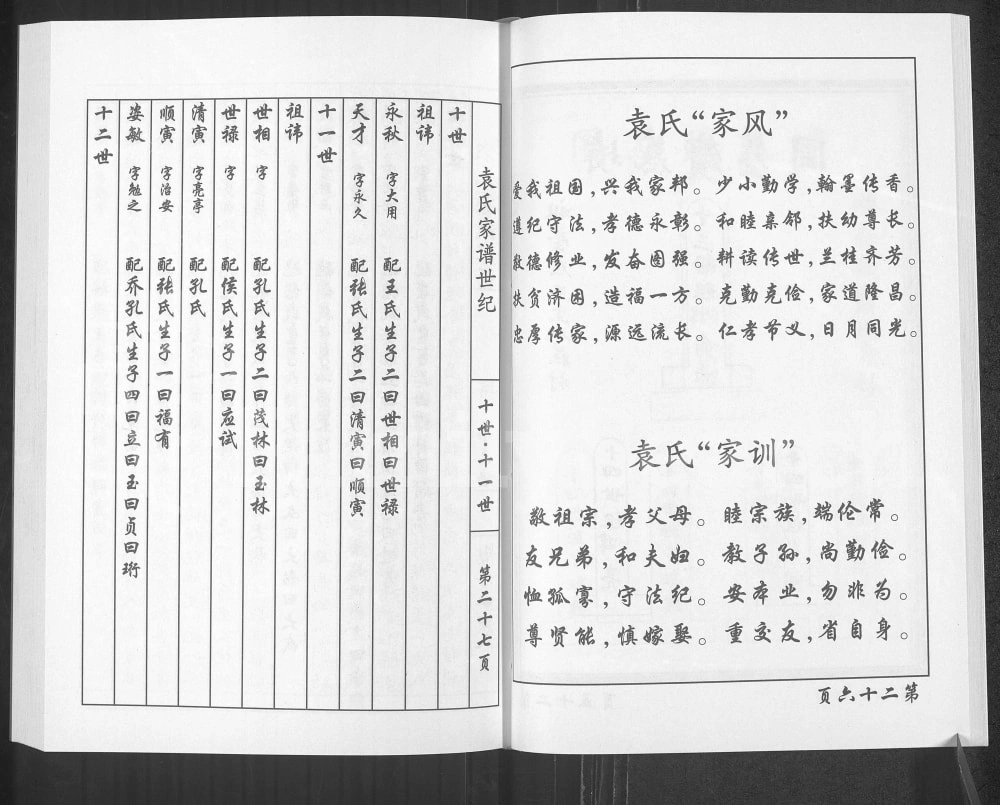 袁氏“家风”
爱我祖国，兴我家邦。少小勤学，翰墨传香。
遵纪守法，孝德永彰。和睦亲邻，扶幼尊长。
敬德修业，发奋图强。耕读传世，兰桂齐芳。
扶贫济困，造福一方。克勤克俭，家道隆昌。
忠厚传家，源远流长。仁孝节义，日月同光。
袁氏“家训”
敬祖宗，孝父母。睦宗族，端伦常。
友兄弟，和夫妇。教子孙，尚勤俭。
恤孤寡，守法纪。安本业，勿非为。
尊贤能，慎嫁娶。重交友，省自身。
页六十二第
袁氏家谱世纪
十世·十一世
第二十七页
十世
祖讳
永秋 字大用 配王氏生子二曰世相曰世禄
天才 字永久 配张氏生子二曰清寅曰顺寅
十一世
祖讳
世相 字 配孔氏生子二曰茂林曰玉林
世禄 字 配侯氏生子一曰应试
清寅 字亮亭 配孔氏
顺寅 字治安 配张氏生子一曰福有
姿敏 字勉之 配乔孔氏生子四曰立曰玉曰贞曰珩
十二世